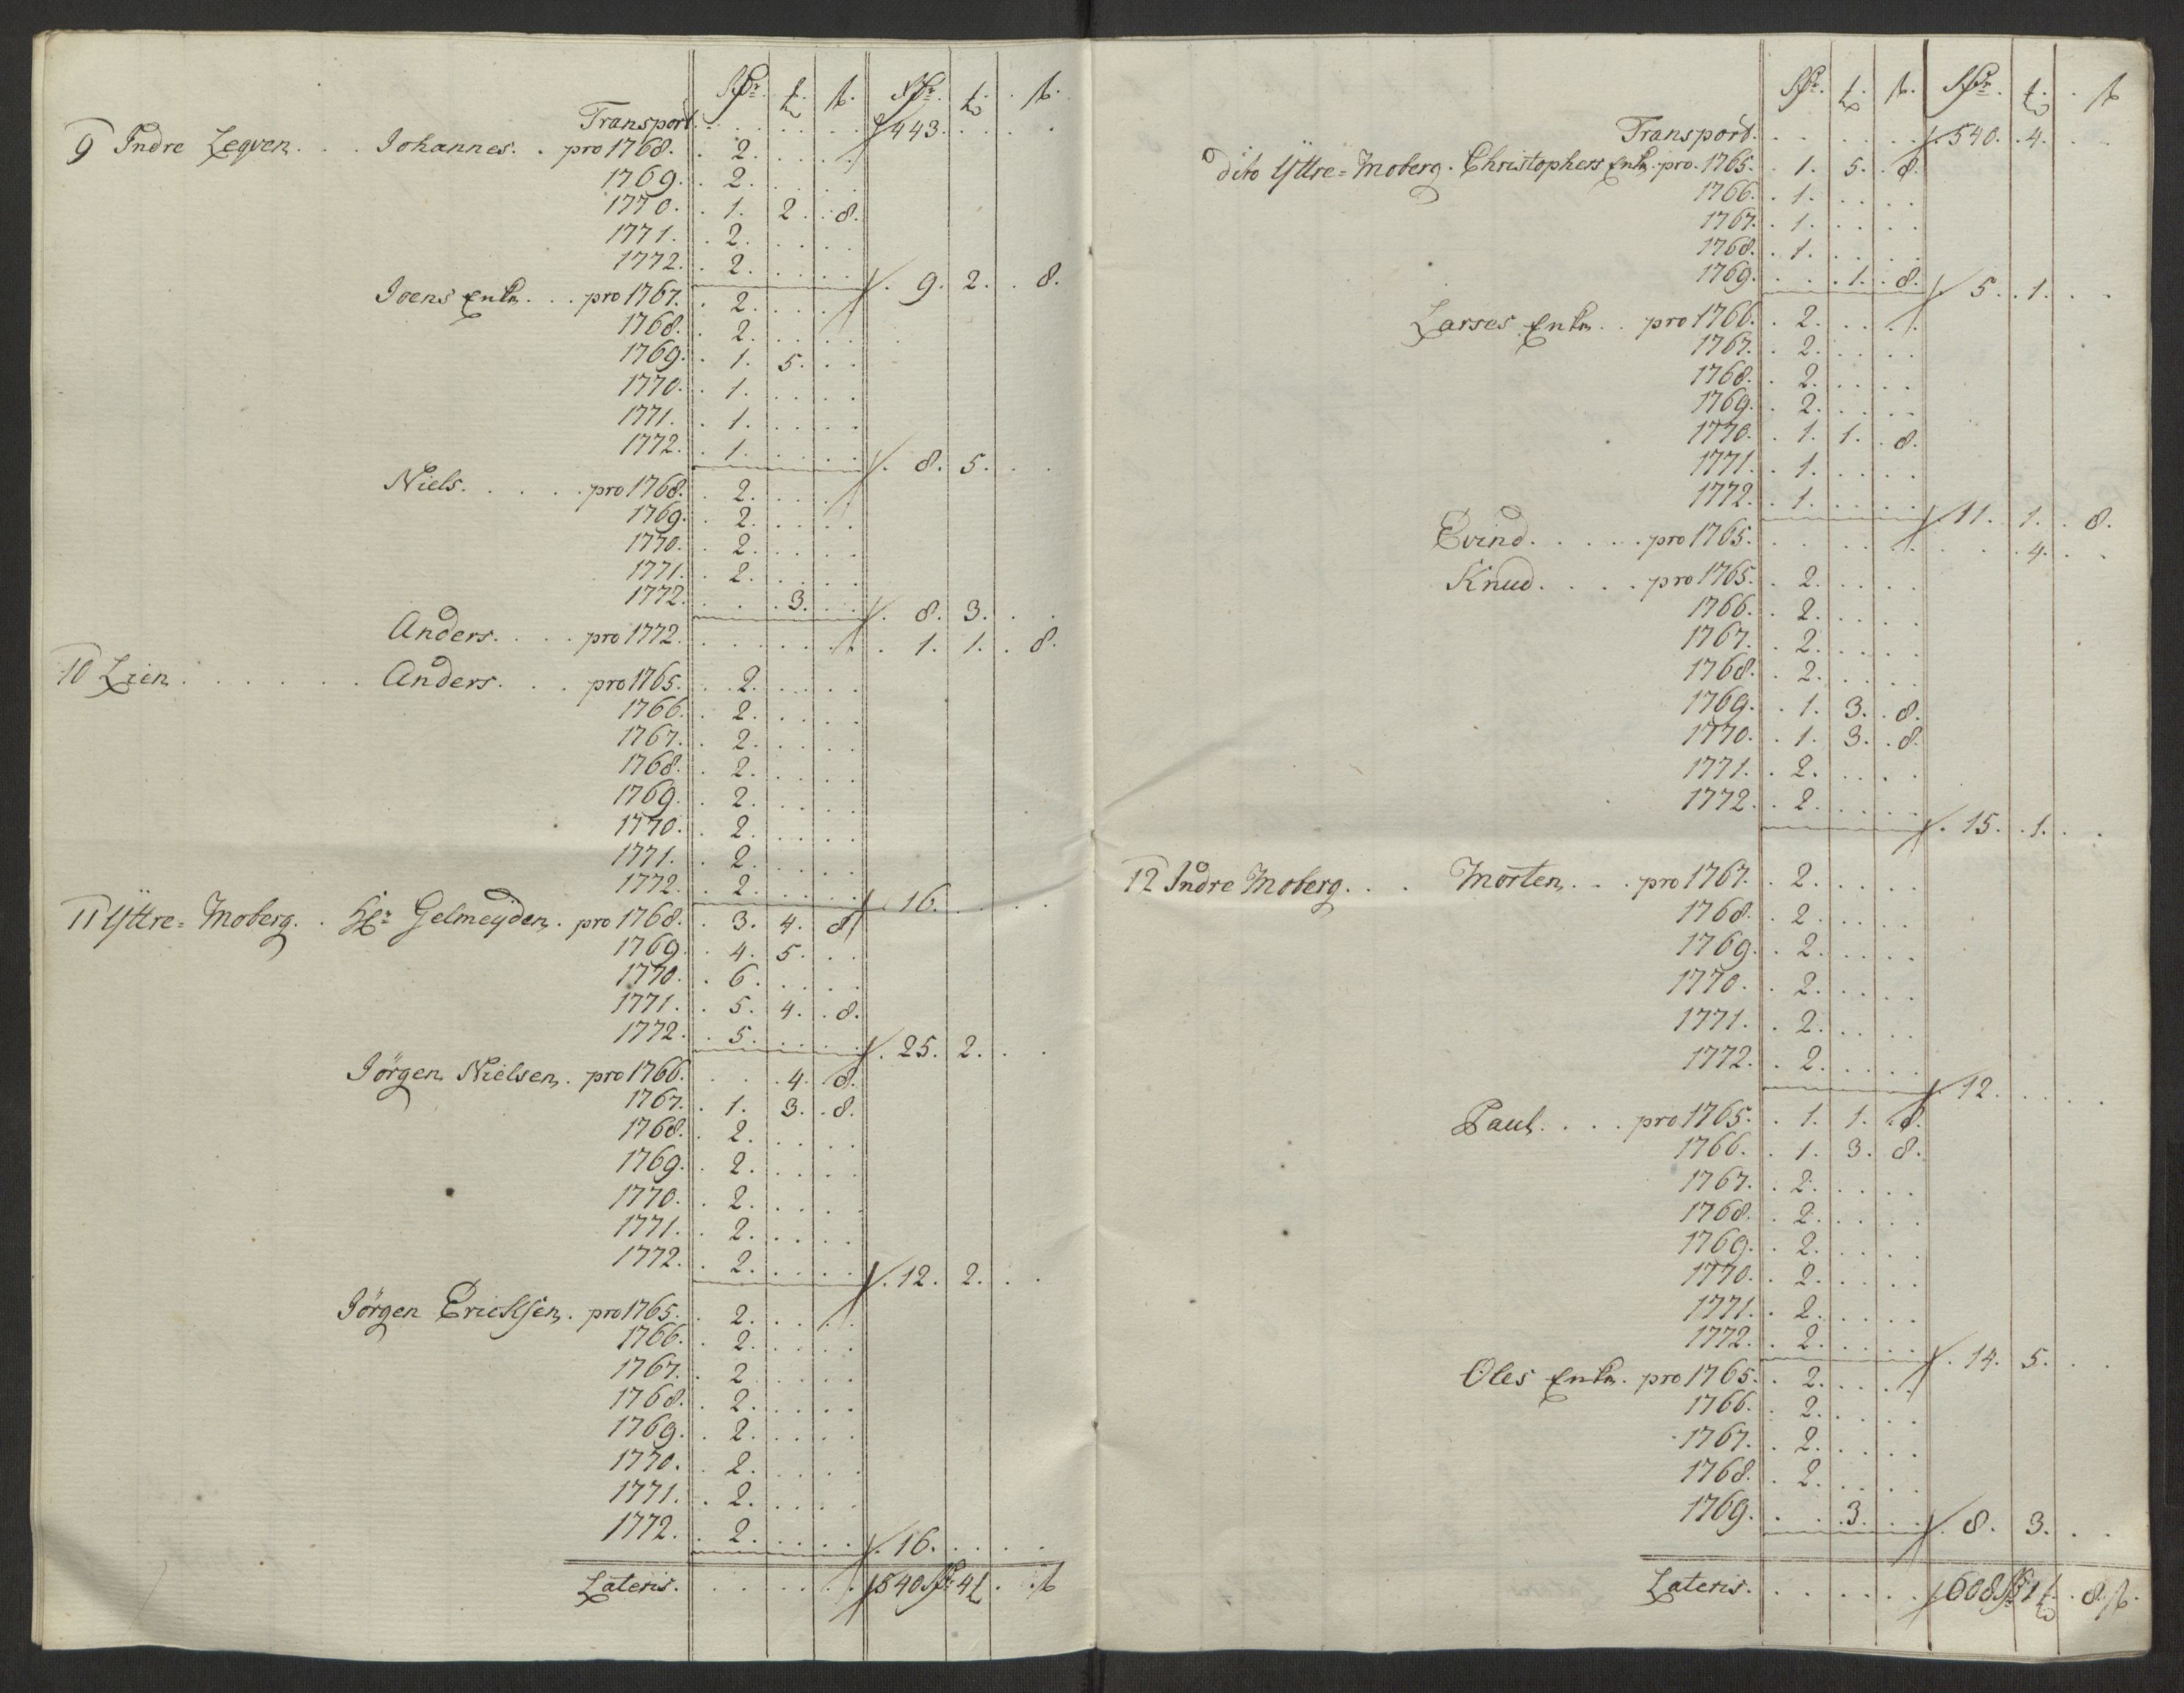 Rdr. ℔. ß. Rdr. ℔. ß.
Transport. . . . . . 443. . . .
9 Indre Legven. . . Johannes. . pro 1768. . 2. . . . .
1769. . 2. . . . .
1770. . 1. 2. . 8.
1771. . 2. . . . .
1772. . 2. . . . . 9. 2. . 8.
Joens Enke. . . pro 1767. . 2. . . . .
1768. . 2. . . . .
1769. . 1. 5. . .
1770. . 1. . . . .
1771. . 1. . . . .
1772. . 1. . . . . 8. 5. . .
Niels. . . . . pro 1768. . 2. . . . .
1769. . 2. . . . .
1770. . 2. . . . .
1771. . 2. . . . .
1772. . . . 3. . . 8. 3. . .
Anders. . . . pro 1772. . . . . . . 1. 1. . 8.
10 Lien. . . . . . Anders. . . pro 1765. . 2. . . . .
1766. . 2. . . . .
1767. . 2. . . . .
1768. . 2. . . . .
1769. . 2. . . . .
1770. . 2. . . . .
1771. . 2. . . . .
1772. . 2. . . . . 16. . . .
11 Yttre = Moberg. . Hr Gelmeyden. pro 1768. . 3. 4. . 8
1769. . 4. 5. . .
1770. . 6. . . . .
1771. . 5. 4. . 8.
1772. . 5. . . . . 25. 2. . .
Jörgen Nielsen. pro 1766. . . . 4. . 8.
1767. . 1. 3. . 8.
1768. . 2. . . . .
1769. . 2. . . . .
1770. . 2. . . . .
1771. . 2. . . . .
1772. . 2. . . . . 12. 2. . .
Jörgen Ericksen. pro 1765. . 2. . . . .
1766. . 2. . . . .
1767. . 2. . . . .
1768. . 2. . . . .
1769. . 2. . . . .
1770. . 2. . . . .
1771. . 2. . . . .
1772. . 2. . . . . 16. . . .
Lateris. . . . . . . 540 Rdr 4 ℔ . . ß
Rdr. ℔. ß. Rdr. ℔. ß
Transport. . . . . . 540. . 4. . .
dito Yttre = Moberg. Christophers Enke. pro. 1765. . 1. 5. . 8.
1766. . 1. . . . .
1767. . 1. . . . .
1768. . 1. . . . .
1769. . . . 1. . 8. 5. . 1. . .
Larses Enke. . pro 1766. . 2. . . . .
1767. . 2. . . . .
1768. . 2. . . . .
1769. . 2. . . . .
1770. . 1. 1. . 8.
1771. . 1. . . . .
1772. . 1. . . . . 11. 1. . 8.
Evind. . . . . pro 1765. . . . . . . . . 4. . .
Knud. . . . pro 1765. . 2. . . . .
1766. . 2. . . . .
1767. . 2. . . . .
1768. . 2. . . . .
1769. . 1. 3. . 8.
1770. . 1. 3. . 8.
1771. . 2. . . . .
1772. . 2. . . . . 15. . 1. . .
12 Indre Moberg. . . Morten. . . pro 1767. . 2. . . . .
1768. . 2. . . . .
1769. . 2. . . . .
1770. . 2. . . . .
1771. . 2. . . . .
1772. . 2. . . . . 12. . . . .
Paul. . . . pro 1765. . 1. 1. . 8.
1766. . 1. 3. 8.
1767. . 2. . . . .
1768. . 2. . . . .
1769. . 2. . . . .
1770. . 2. . . . .
1771. . 2. . . . .
1772. . 2. . . . . 14. 5. . .
Oles Enke. pro 1765. . 2. . . . .
1766. . 2. . . . .
1767. . 2. . . . .
1768. . 2. . . . .
1769. . . . 3. . . 8. 3. . .
Lateris. . . . . . . 608 Rdr 1 ℔. . 8. ß.